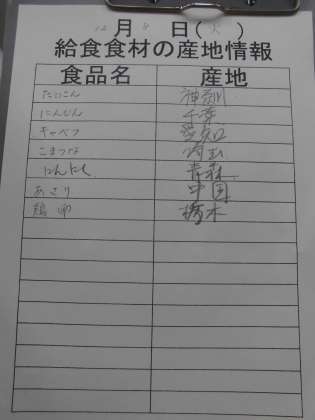 12月8日(火)
給食食材の産地情報
食品名 産地
だいこん 神奈川
にんじん 千葉
キャベツ 愛知
こまつな 埼玉
にんにく 青森
あさり 中国
鶏卵 栃木